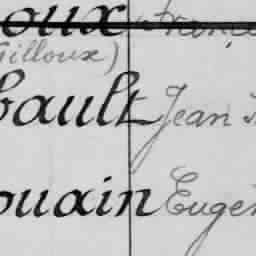 oux Franço
Gilloux)
bault Jean
ouain Eugèn